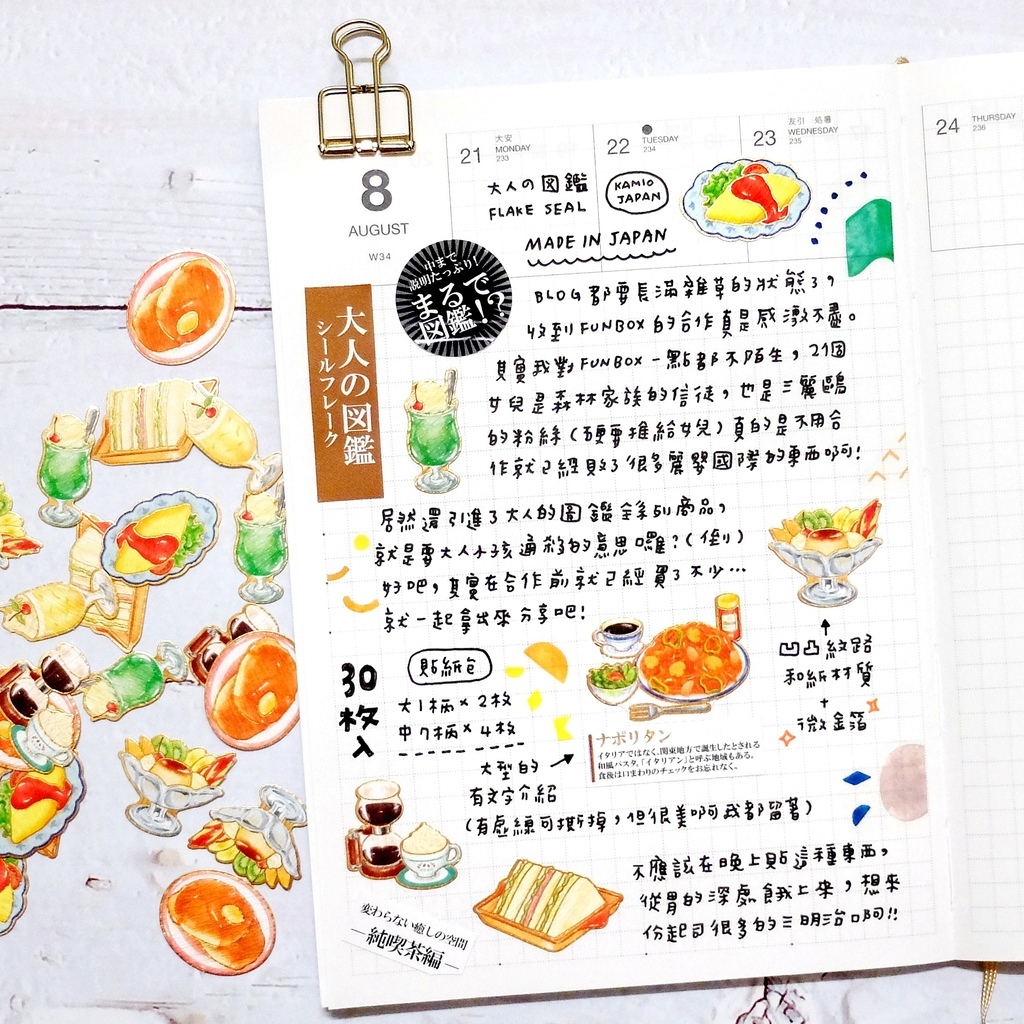 8
AUGUST
W34
21
大安
MONDAY
233
22
TUESDAY
234
23
友引 処暑
WEDNESDAY
235
24
THURSDAY
236
大人の図鑑
FLAKE SEAL
KAMIO
JAPAN
MADE IN JAPAN
中まで
説明たっぷり!
まるで
図鑑!?
大人の図鑑
シールフレーク
BLOG都要長滿雜草的狀態了,
收到FUNBOX的合作真是感激不盡。
其實我對FUNBOX一點都不陌生,2個
女兒是森林家族的信徒,也是三麗鷗
的粉絲(硬要推給女兒)真的是不用合
作就已經敗了很多麗嬰國際的東西啊!
居然還引進了大人的圖鑑系列商品,
就是要大人小孩通殺的意思囉?(倒)
好吧,其實在合作前就已經買了不少...
就一起拿出來分享吧!
30
枚
入
貼紙包
大1柄×2枚
中7柄×4枚
大型的
有文字介紹
(有虛線可撕掉,但很美啊我都留著)
ナポリタン
イタリアではなく、関東地方で誕生したとされる
和風パスタ。「イタリアン」と呼ぶ地域もある。
食後は口まわりのチェックをお忘れなく。
凹凸紋路
和紙材質
+
微金箔
変わらない癒しの空間
—純喫茶編—
不應該在晚上貼這種東西,
從胃的深處餓上來,想來
份起司很多的三明治啊!!